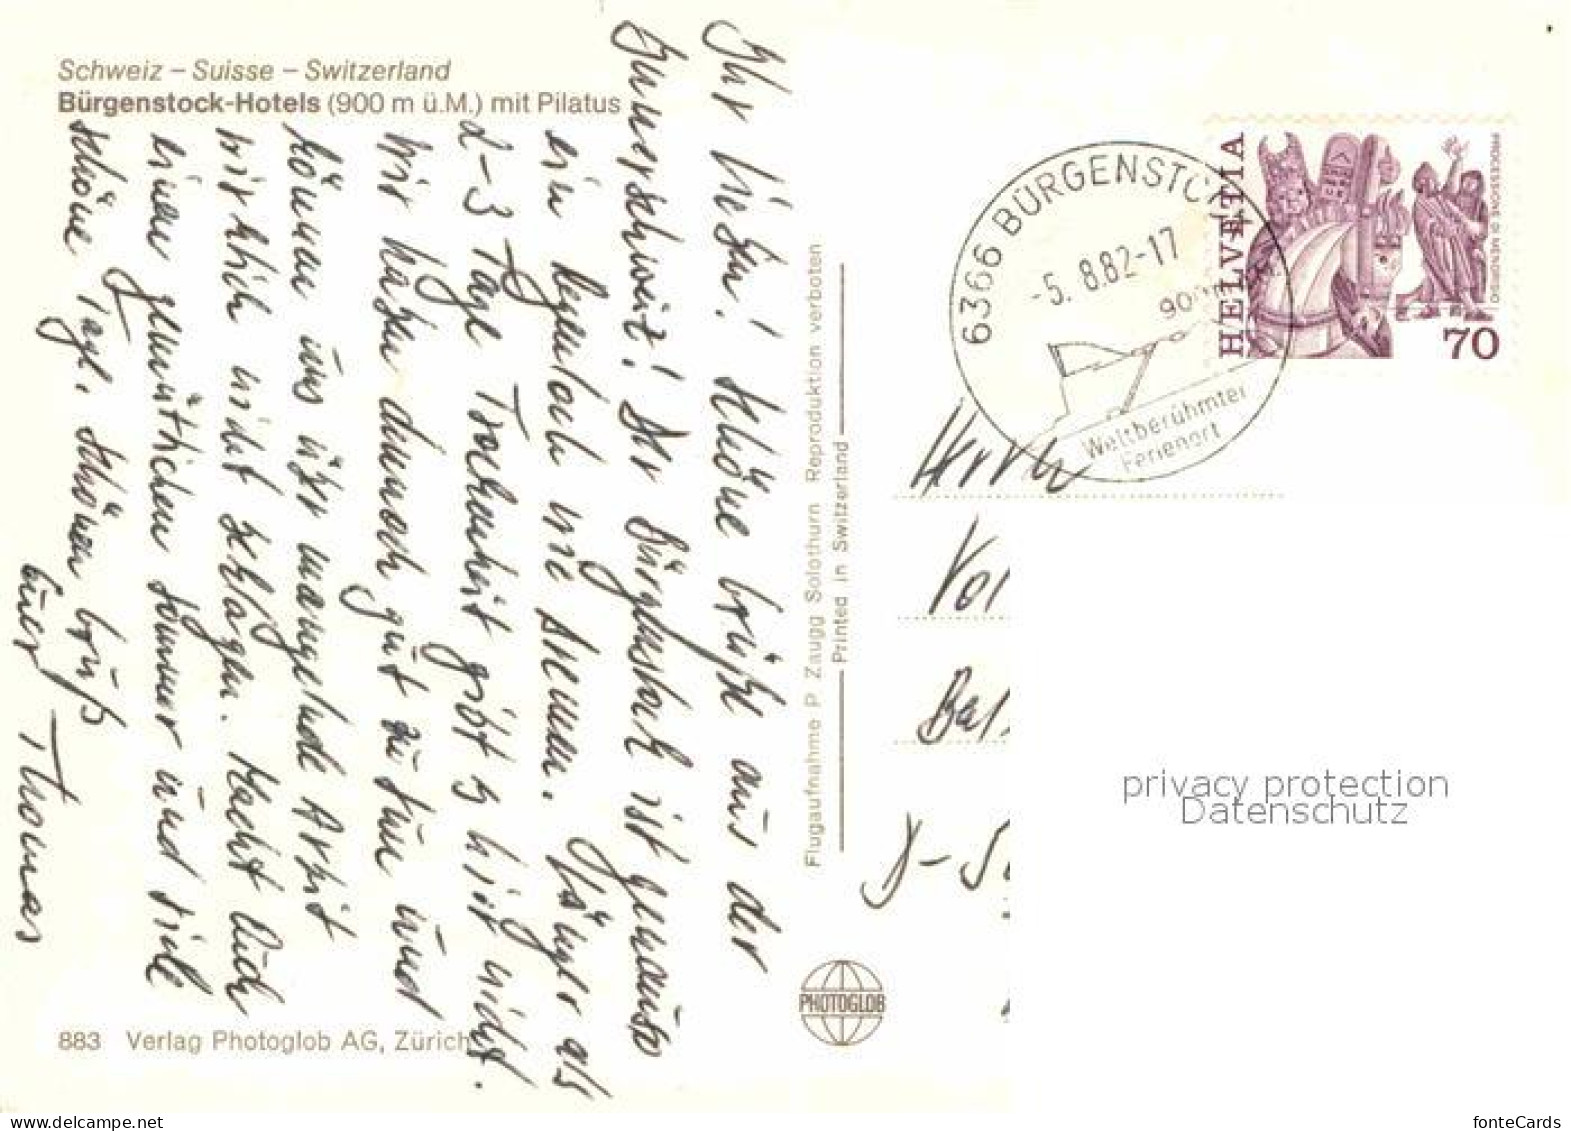 Schweiz – Suisse – Switzerland
Bürgenstock-Hotels (900 m ü.M.) mit Pilatus
Ihr Lieben! Schöne Grüße aus der
Innerschweiz! Der Bürgenstock ist genauso
ein Regenloch wie Bremen. Länger als
2-3 Tage Trockenheit gibt's hier nicht.
Wir haben dennoch gut zu tun und
können uns über mangelnde Arbeit
wirklich nicht beklagen. Macht Euch
einen gemütlichen Sommer und viele
schöne Tage. Schönen Gruß
Euer Thomas
883 Verlag Photoglob AG, Zürich
Flugaufnahme P. Zaugg Solothurn Reproduktion verboten
Printed in Switzerland
PHOTOGLOB
6366 BÜRGENSTOCK
-5. 8.82-17
900m
Weltberühmter
Ferienort
HELVETIA
PROCESSIONE DI MENDRISIO
70
privacy protection
Datenschutz
www.delcampe.net
fonteCards